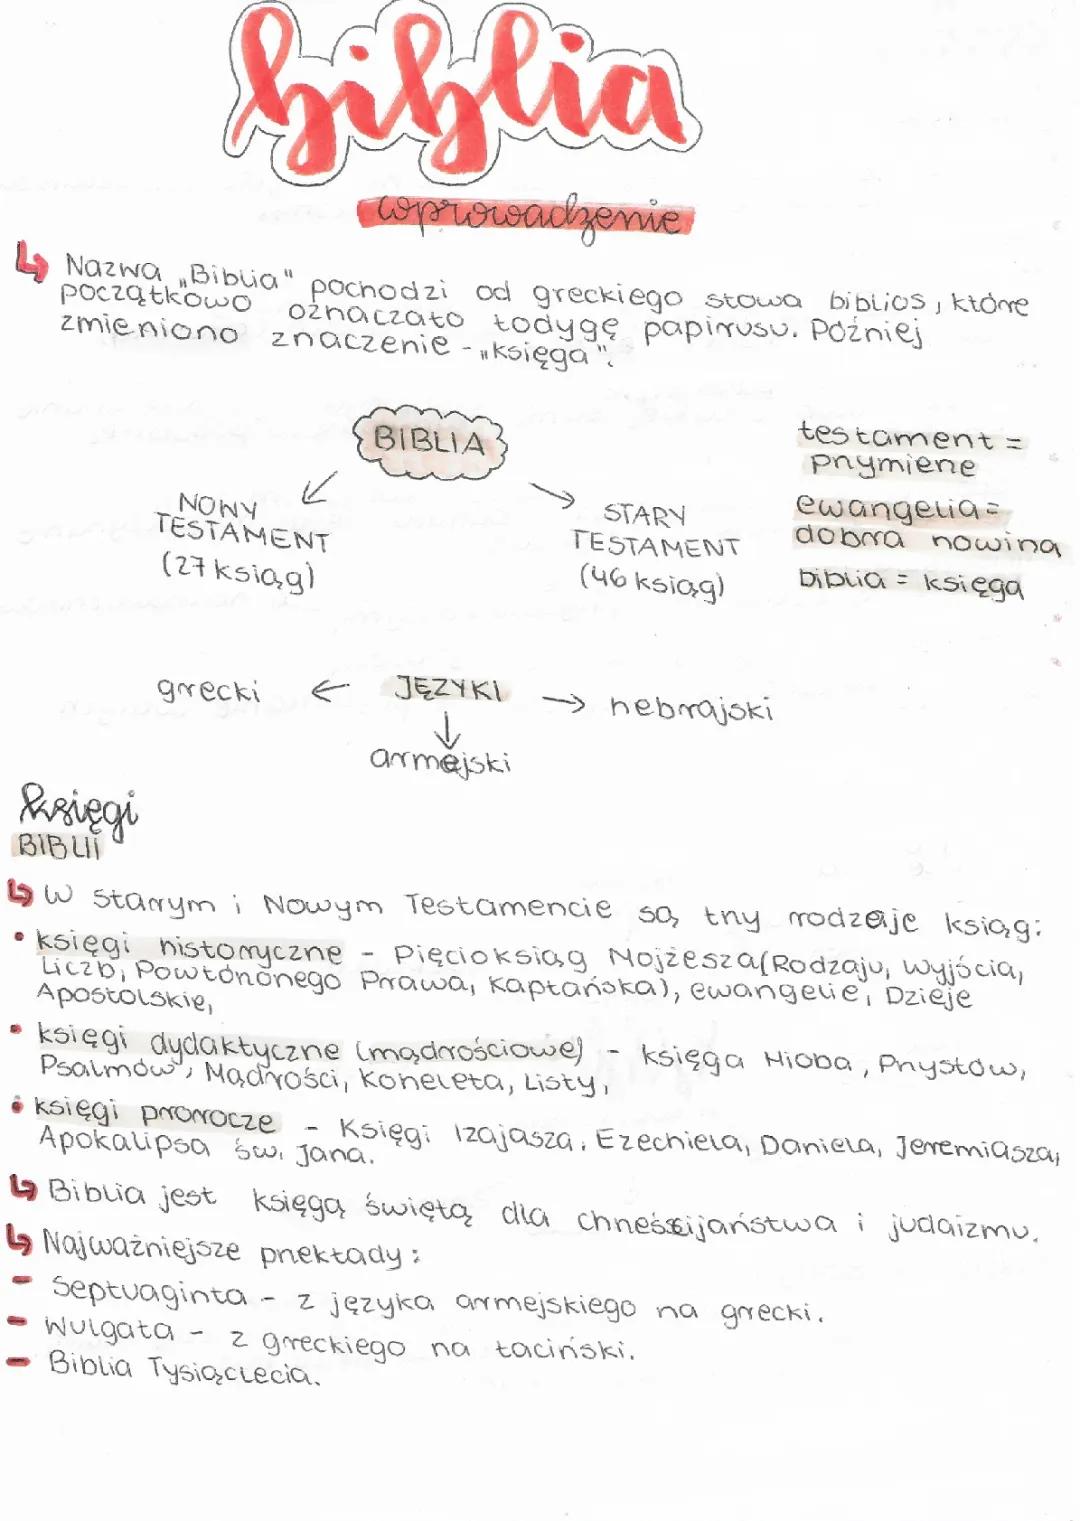 biblia
wprowadzenie
↳ Nazwa „Biblia" pochodzi od greckiego słowa biblios, które
początkowo oznaczało łodygę papirusu. Później
zmieniono znaczenie - „księga".
BIBLIA
NOWY
TESTAMENT
(27 ksiąg)
STARY
TESTAMENT
(46 ksiąg)
testament =
przymierze
ewangelia =
dobra nowina
biblia = księga
grecki ← JĘZYKI → hebrajski
armejski
Księgi
BIBLII
↳ W Starym i Nowym Testamencie są trzy rodzaje ksiąg:
• księgi historyczne - Pięcioksiąg Mojżesza (Rodzaju, Wyjścia,
Liczb, Powtórzonego Prawa, Kapłańska), ewangelie, Dzieje
Apostolskie,
• księgi dydaktyczne (mądrościowe) - księga Hioba, Przysłów,
Psalmów, Mądrości, Koheleta, Listy,
• księgi prorocze - Księgi Izajasza, Ezechiela, Daniela, Jeremiasza,
Apokalipsa św. Jana.
↳ Biblia jest księgą świętą dla chrześcijaństwa i judaizmu.
↳ Najważniejsze przekłady:
- Septuaginta - z języka armejskiego na grecki.
- Wulgata - z greckiego na łaciński.
- Biblia Tysiąclecia.